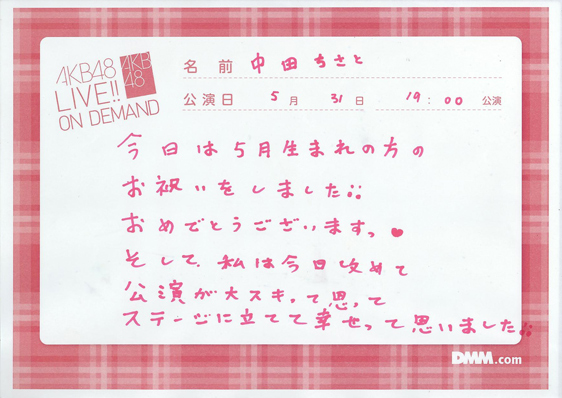 AKB48
LIVE!!
ON DEMAND
AKB
48
名前 中田ちさと
公演日 5月 31日 19:00 公演
今日は5月生まれの方の
お祝いをしました
おめでとうございますっ
そして、私は今日改めて
公演が大スキって思って
ステージに立てて幸せって思いました
DMM.com